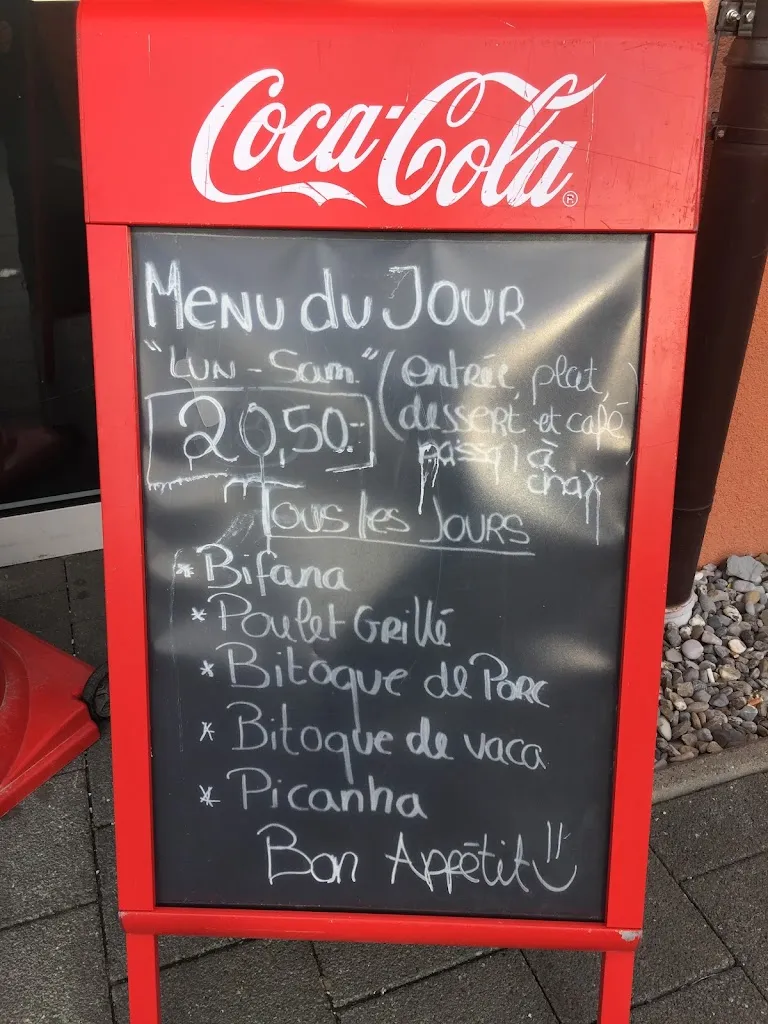 Coca-Cola®
MENU du JOUR
"LUN - Sam" (entrée, plat,
20,50.- dessert, et café
à
choix
Tous les JOURS
* Bifana
* Poulet GRillé
* Bitoque de PORC
* Bitoque de vaca
* Picanha
Bon Appétit